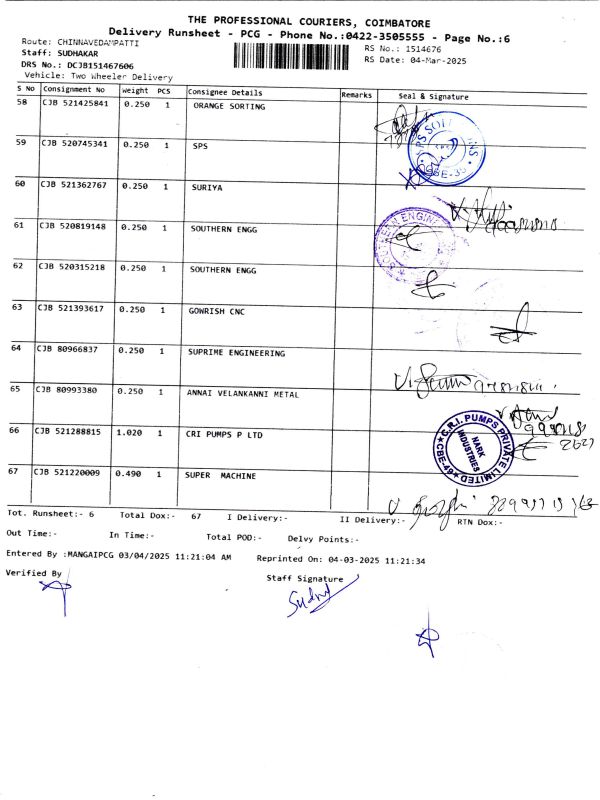 THE PROFESSIONAL COURIERS, COIMBATORE
Delivery Runsheet - PCG - Phone No.:0422-3505555 - Page No.:6
Route: CHINNAVEDAMPATTI
RS No.: 1514676
Staff: SUDHAKAR
RS Date: 04-Mar-2025
DRS No.: DCJB151467606
Vehicle: Two Wheeler Delivery
S No Consignment No Weight PCS Consignee Details Remarks Seal & Signature
58 CJB 521425841 0.250 1 ORANGE SORTING
59 CJB 520745341 0.250 1 SPS
60 CJB 521362767 0.250 1 SURIYA
61 CJB 520819148 0.250 1 SOUTHERN ENGG
62 CJB 520315218 0.250 1 SOUTHERN ENGG
63 CJB 521393617 0.250 1 GOWRISH CNC
64 CJB 80966837 0.250 1 SUPRIME ENGINEERING
65 CJB 80993380 0.250 1 ANNAI VELANKANNI METAL
66 CJB 521288815 1.020 1 CRI PUMPS P LTD
C.R.I. PUMPS PRIVATE LIMITED
CBE-49
NARK
INDUSTRIES
67 CJB 521220009 0.490 1 SUPER MACHINE
Tot. Runsheet:- 6 Total Dox:- 67 I Delivery:- II Delivery:- RTN Dox:-
Out Time:- In Time:- Total POD:- Delvy Points:-
Entered By :MANGAIPCG 03/04/2025 11:21:04 AM Reprinted On: 04-03-2025 11:21:34
Verified By
Staff Signature